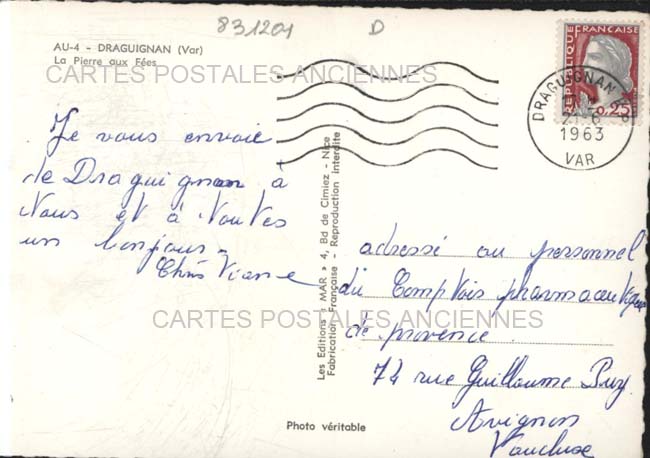 831204
D
AU-4 - DRAGUIGNAN (Var)
La Pierre aux Fées
CARTES POSTALES ANCIENNES
REPUBLIQUE FRANÇAISE
0,25
DRAGUIGNAN
21-6
1963
VAR
Je vous envoie
de Draguignan à
Tous et à Toutes
un bonjour.
Christiane
Les Editions " MAR " 4, Bd de Cimiez - Nice
Fabrication Française - Reproduction interdite
adressé au personnel
du Comptois pharmaceutique
de provence
CARTES POSTALES ANCIENNES
74 rue Guillaume Puy.
Avignon
Vaucluse
Photo véritable